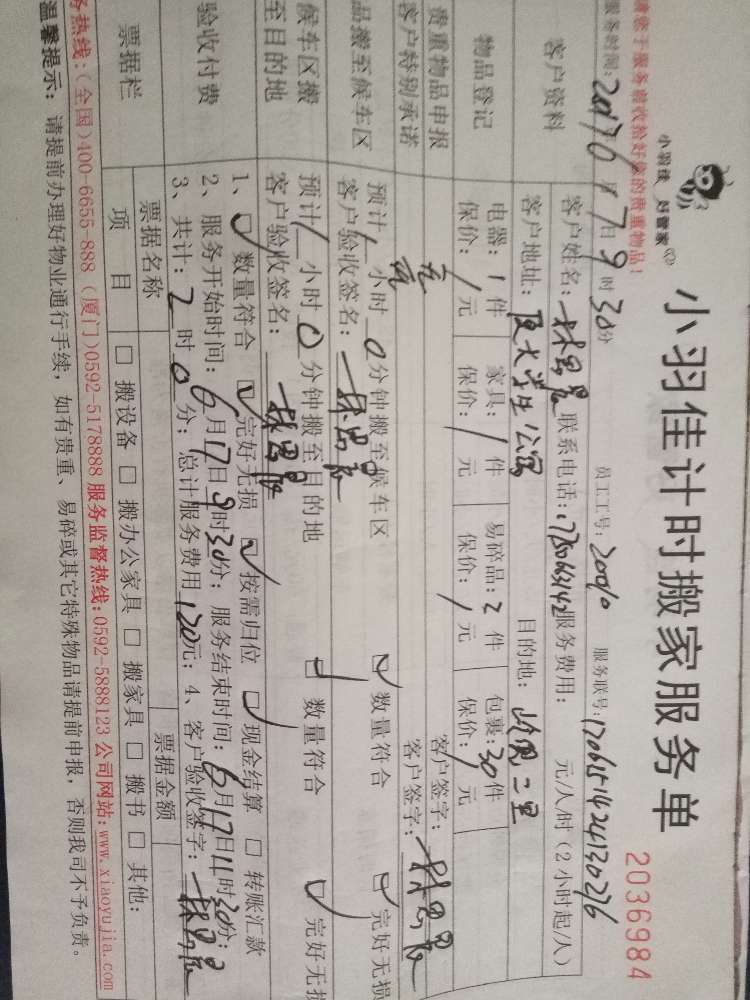 小羽佳 好管家
小羽佳计时搬家服务单
2036984
请您于服务前收拾好您的贵重物品！
员工工号：20010 服务联号：
服务时间：2017 6月17日9时30分
客户资料
客户姓名： 联系电话： 服务费用： 元/人/时（2小时起/人）
客户地址：厦大学生公寓 目的地：岭兜二里
物品登记
电器：1件 家具：/件 易碎品：2件 包裹：30件
保价：/元 保价：/元 保价：/元 保价：/元
贵重物品申报 无 客户签字：
客户特别承诺 客户签字：
品搬至候车区
预计/小时0分钟搬至候车区 数量符合 完好无损
客户验收签名：
候车区搬至目的地
预计/小时0分钟搬至目的地 数量符合 完好无损
客户验收签名：
验收付费
1、数量符合 完好无损 按需归位 现金结算 转账汇款
2、服务开始时间：6月17日9时30分；服务结束时间：6月17日11时30分；
3、共计：2时0分；总计服务费用120元；4、客户验收签字：
票据栏
票据名称 票据金额
项目 搬设备 搬办公家具 搬家具 搬书 其他：
务热线：（全国）400-6655-888（厦门）0592-5178888 服务监督热线：0592-5888123 公司网站：www.xiaoyujia.com
温馨提示：请提前办理好物业通行手续，如有贵重、易碎或其它特殊物品请提前申报，否则我司不予负责。